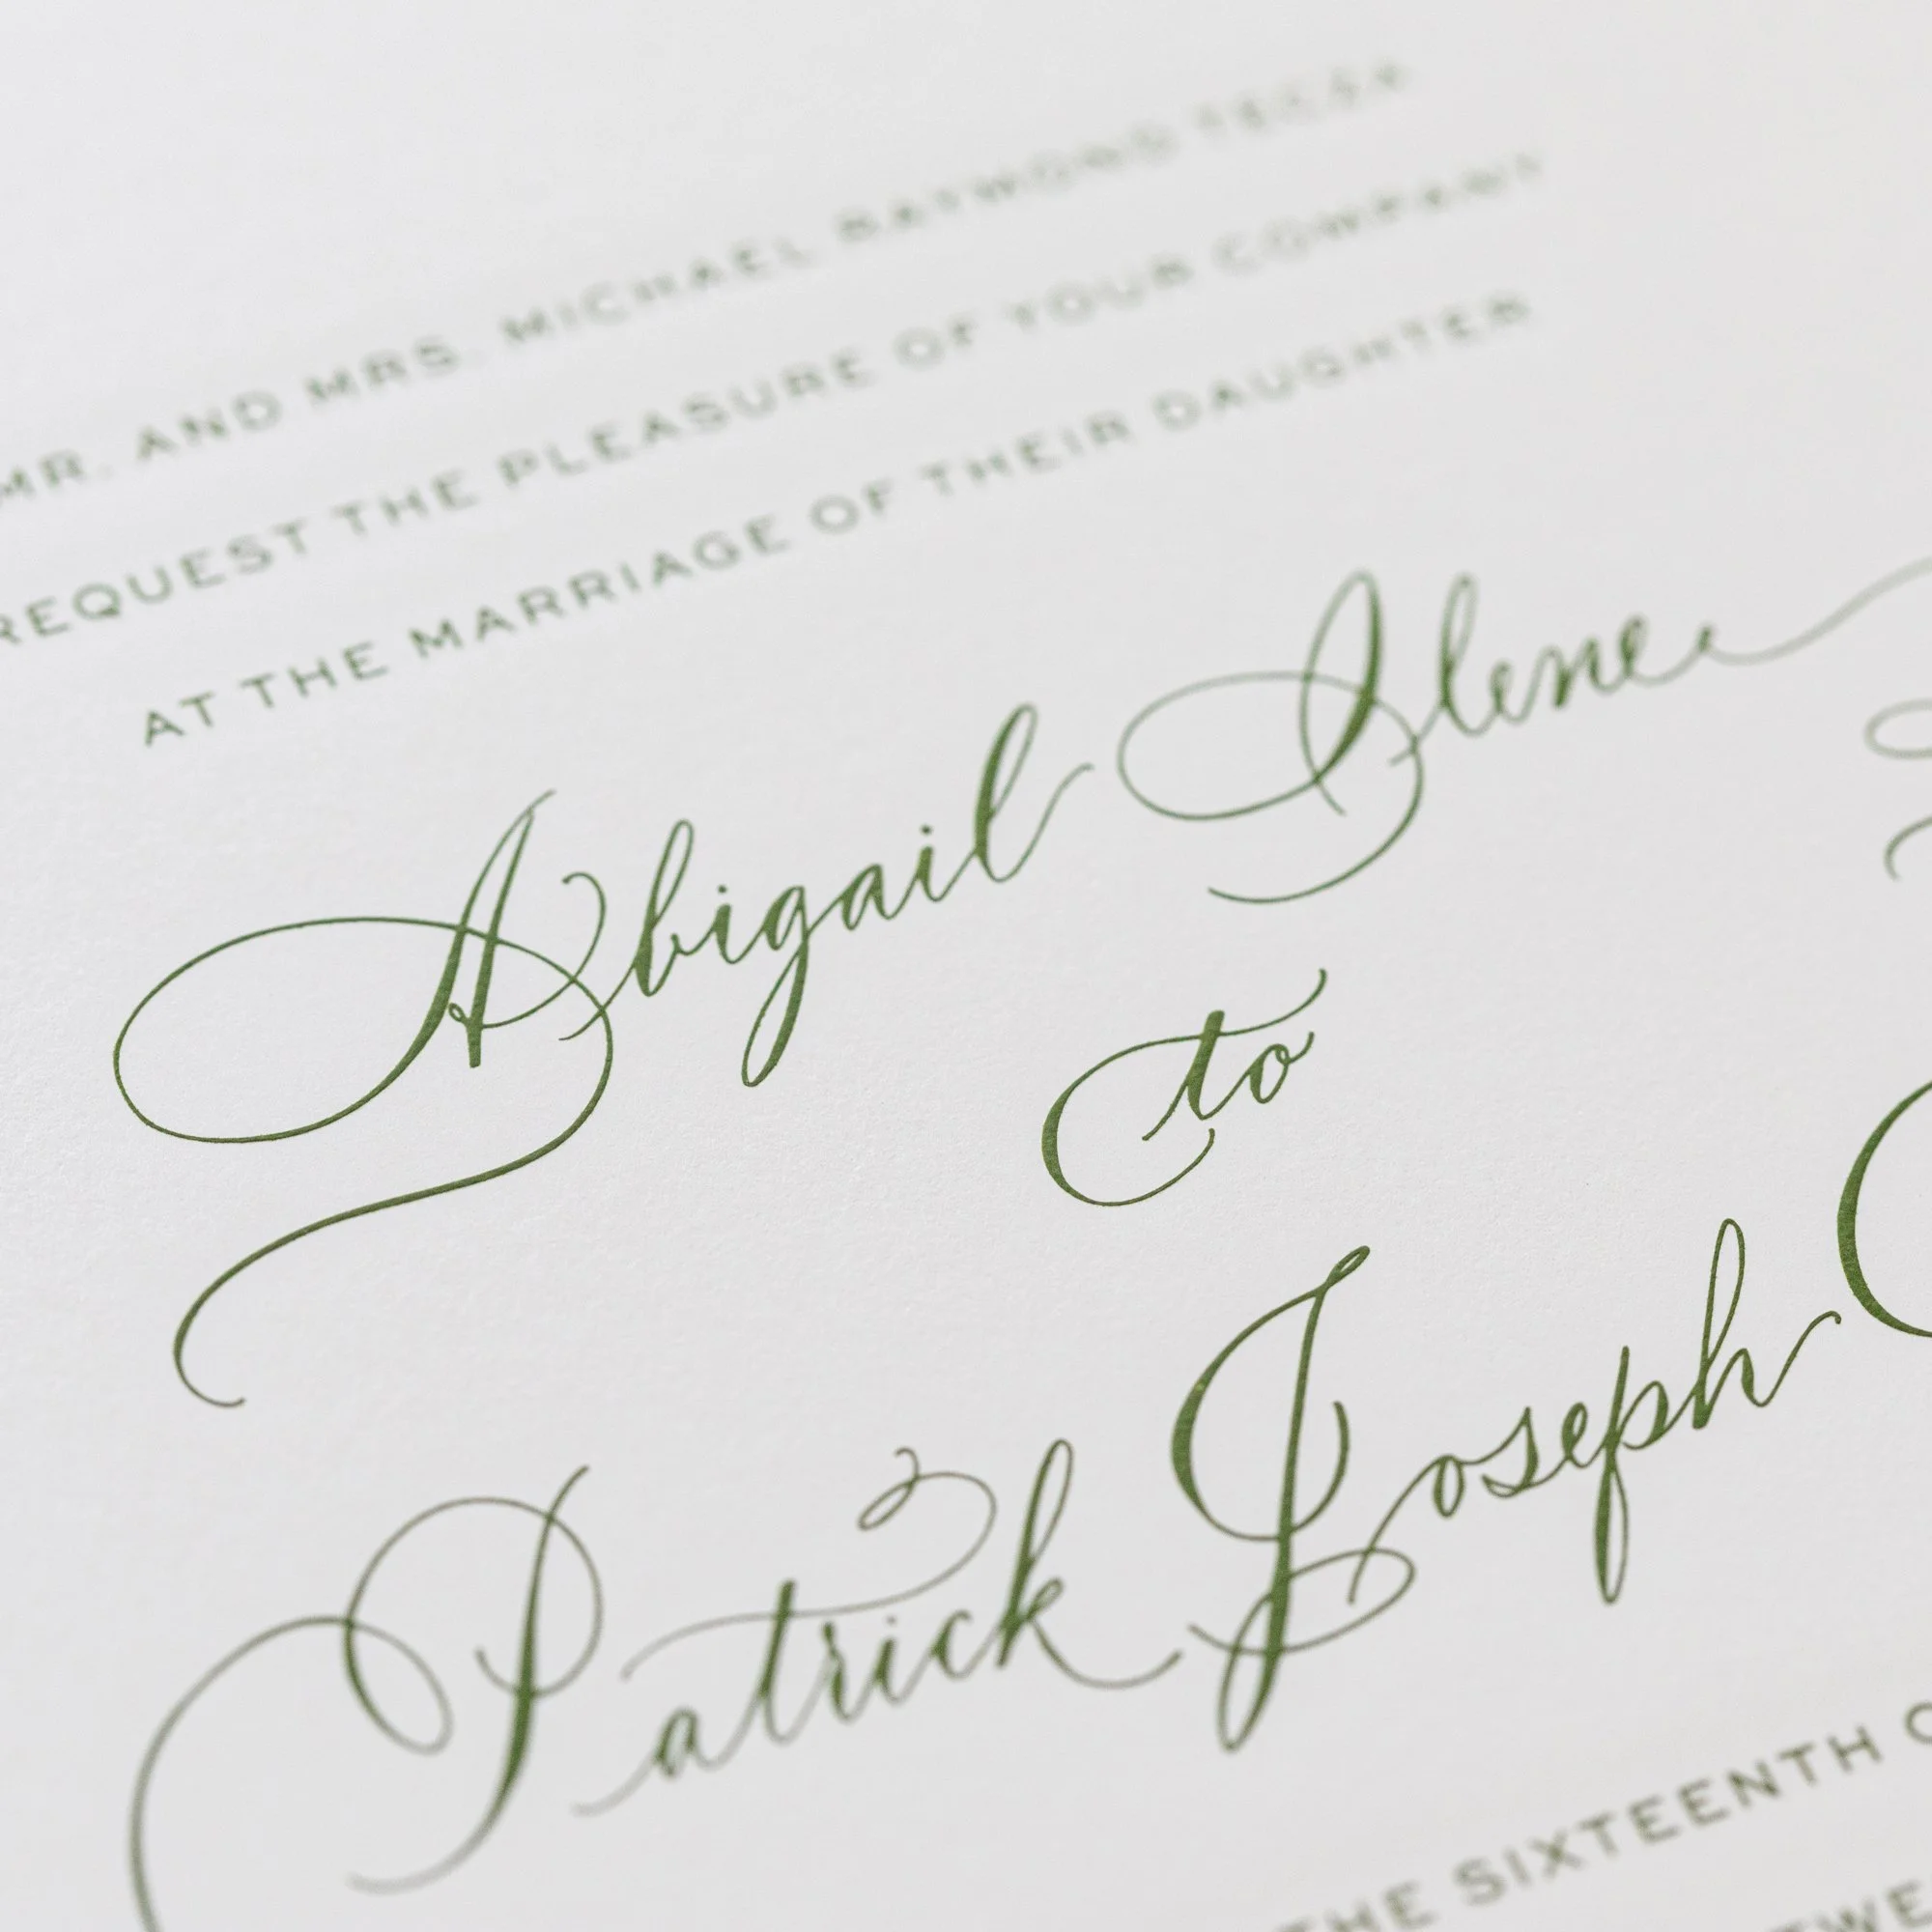 MR. AND MRS. MICHAEL RAYMOND TECSA
REQUEST THE PLEASURE OF YOUR COMPANY
AT THE MARRIAGE OF THEIR DAUGHTER
Abigail Ilene
to
Patrick Joseph
THE SIXTEENTH